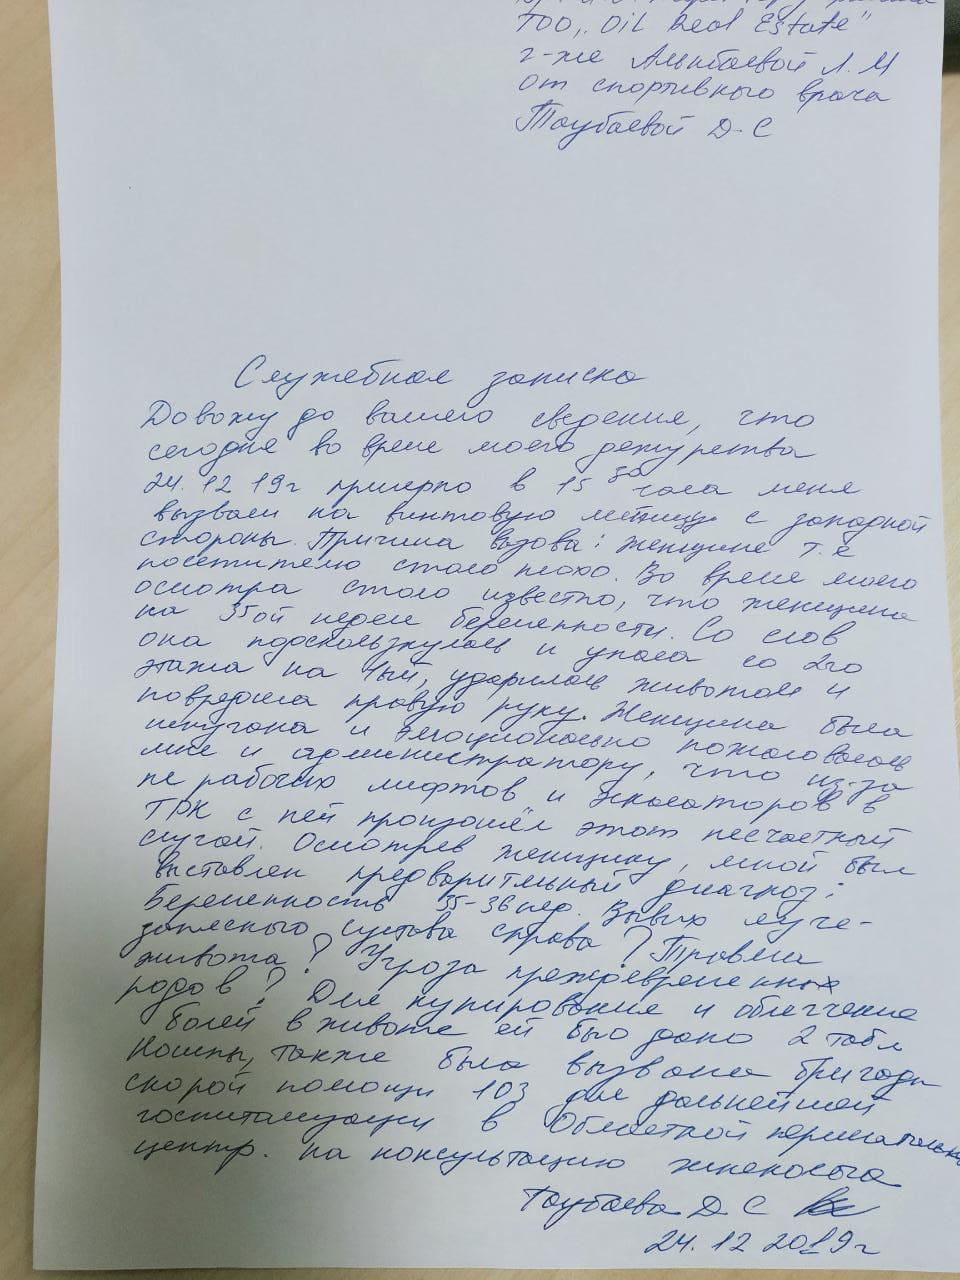 ТОО „Oil Real Estate"
г-же Алынбаевой Л.М
от спортивного врача
Таубаевой Д-С
Служебная записка
Довожу до вашего сведения, что
сегодня во время моего дежурства
24.12 19г примерно в 15 30 часа меня
вызвали на винтовую летницу с западной
стороны. Причина вызова: женщине т.е
посетителю стало плохо. Во время моего
осмотра стало известно, что женщина
на 35ой недели беременности. Со слов
она подскользнулась и упала со 2го
этажа на 1ый, ударилась животом и
повредила правую руку. Женщина была
испугана и эмоционально пожаловалась
мне и администратору, что из-за
не рабочих лифтов и эскалаторов в
ТРК с ней произошёл этот несчастный
случай. Осмотрев женщину, мной был
выставлен предварительный диагноз:
Беременность 35-36 нед. Вывих луче-
запясного сустава справа? Травма
живота? Угроза преждевременных
родов? Для купирования и облегчение
болей в животе ей было дано 2 табл
Ношпы, также была вызвана бригада
скорой помощи 103 для дальнейшей
госпитализации в Областной перинатальн
центр. на консультацию гинеколога
Таубаева Д С
24.12 2019г